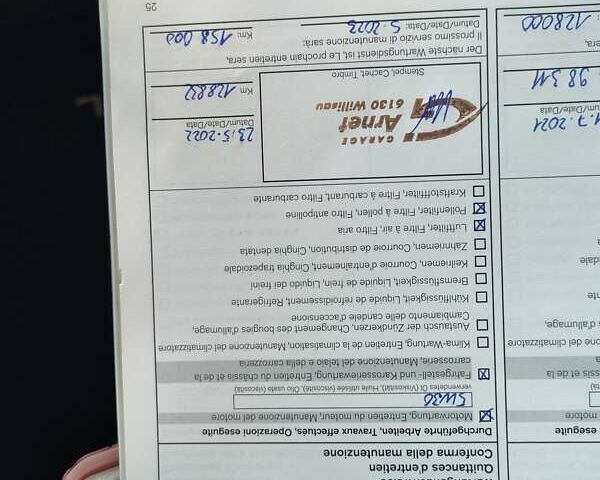 Quittances d'entretien
Conferma della manutenzione
Durchgeführte Arbeiten, Travaux effectués, Operazioni eseguite
Motorwartung, Entretien du moteur, Manutenzione del motore
5W30
verwendetes Öl (Viskosität), Huile utilisée (viscosité), Olio usato (viscosità)
Fahrgestell- und Karosseriewartung, Entretien du châssis et de la
carrosserie, Manutenzione del telaio e della carrozzeria
Klima-Wartung, Entretien de la climatisation, Manutenzione del climatizzatore
Austausch der Zündkerzen, Changement des bougies d'allumage,
Cambiamento delle candele d'accensione
Kühlflüssigkeit, Liquide de refroidissement, Refrigerante
Bremsflüssigkeit, Liquide de frein, Liquido dei freni
Keilriemen, Courroie d'entraînement, Cinghia trapezoidale
Zahnriemen, Courroie de distribution, Cinghia dentata
Luftfilter, Filtre à air, Filtro aria
Pollenfilter, Filtre à pollen, Filtro antipolline
Kraftstofffilter, Filtre à carburant, Filtro carburante
GARAGE
Arnet
6130 Willisau
Stempel, Cachet, Timbro
23.5.2022
Datum/Date/Data
128832
Km
Der nächste Wartungsdienst ist, Le prochain entretien sera,
Il prossimo servizio di manutenzione sarà:
Datum/Date/Data: 5.2023
Km: 158 000
25
eseguite
motore
châssis et de la
climatizzatore
d'allumage,
.7.2021
Datum/Date/Data
98311
Km
sera,
128000